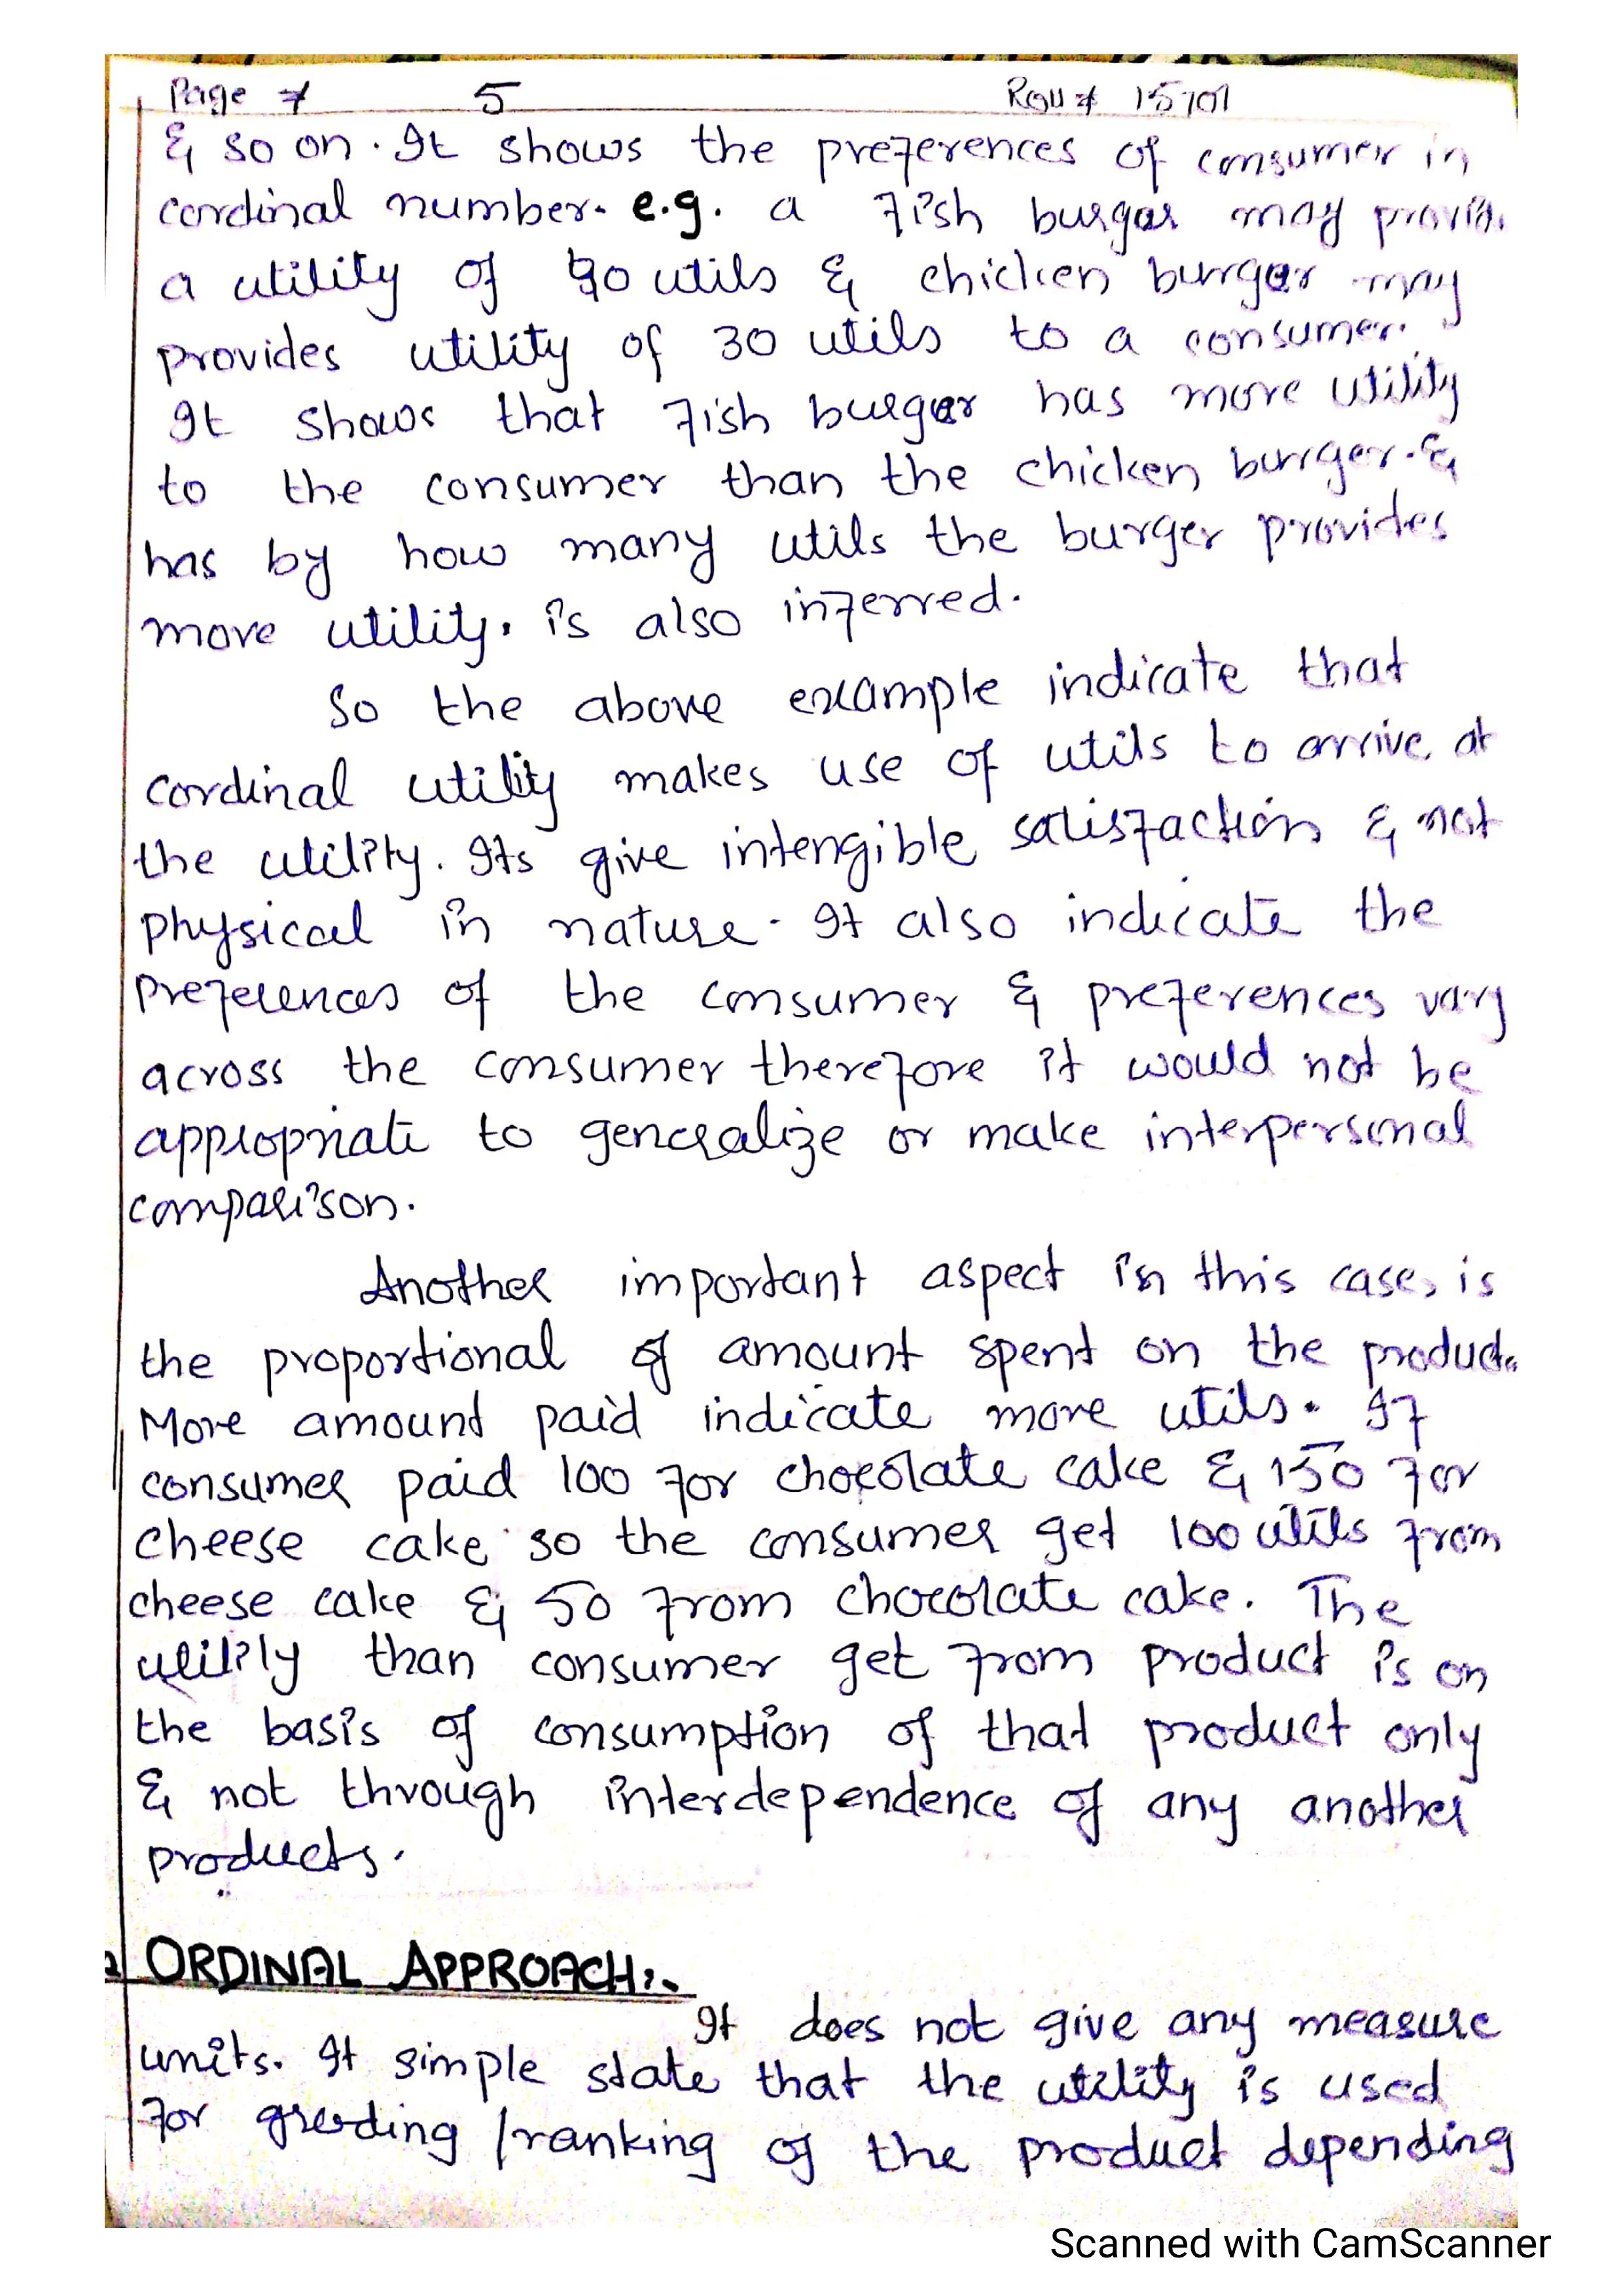 Page # 5 Roll # 15701
& so on. It shows the preferences of consumer in
cordinal number. e.g. a fish burger may
a utility of 90 utils & chicken burger may
provides utility of 30 utils to a consumer.
It shows that fish burger has more utility
to the consumer than the chicken burger. &
has by how many utils the burger provides
more utility, is also inferred.
So the above example indicate that
cordinal utility makes use of utils to arrive at
the utility. Its give intengible satisfaction & not
physical in nature. It also indicate the
preferences of the consumer & preferences vary
across the consumer therefore it would not be
appropriate to generalize or make interpersonal
comparison.
Another important aspect in this case, is
the proportional of amount spent on the product.
More amount paid indicate more utils. If
consumer paid 100 for chocolate cake & 150 for
cheese cake so the consumer get 100 utils from
cheese cake & 50 from chocolate cake. The
utility than consumer get from product is on
the basis of consumption of that product only
& not through interdependence of any another
products.
2 ORDINAL APPROACH:-
It does not give any measure
units. It simple state that the utility is used
for grading / ranking of the product depending
Scanned with CamScanner